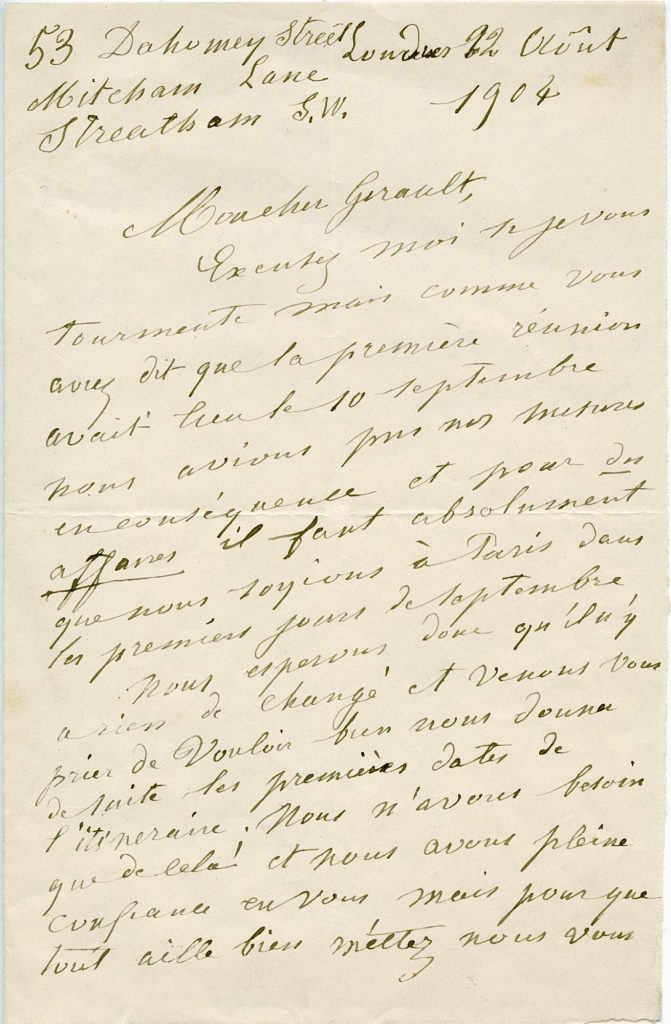 53 Dahomey Street Londres 22 Août
Mitcham Lane 1904
Streatham S.W.
Moncher Gerault,
Excusez moi si je vous
tourmente mais comme vous
avez dit que la première réunion
avait lieu le 10 septembre
nous avions pris nos mesures
en conséquence et pour des
affaires il faut absolument
que nous soyions à Paris dans
les premiers jours de septembre
Nous esperons donc qu'il n'y
a rien de changé et venons vous
prier de vouloir bien nous donner
de suite les premières dates de
l'itineraire. Nous n'avons besoin
que de celà et nous avons pleine
confiance en vous mais pour que
tout aille bien méttez nous vous